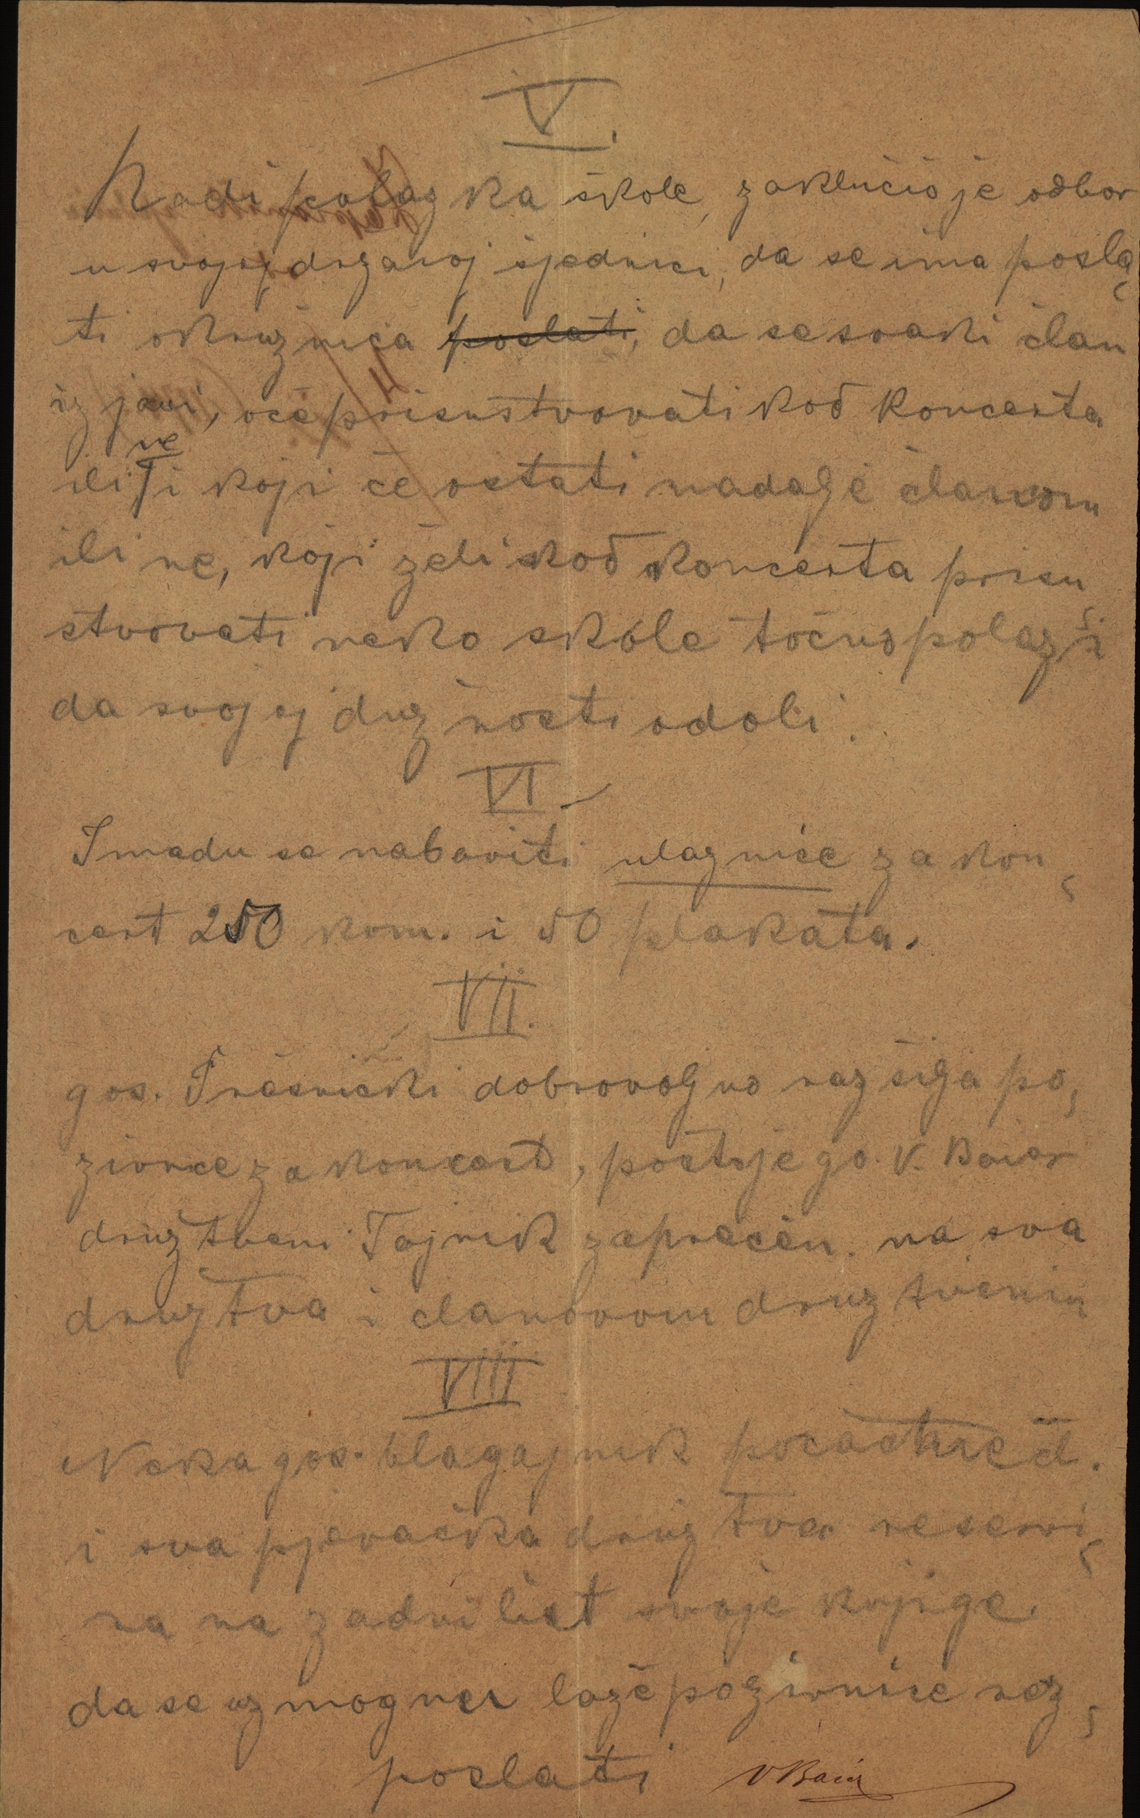 V.
Radi polazka škole, zaključio je odbor
u svojoj držanoj sjednici, da se ima posla-
ti okružnica poslati, da se svaki član
izjavi, oće prisustvovati kod koncerta
ili ne i koji će ostati nadalje članom
ili ne, koji želi kod koncerta prisu-
stvovati neka škole točno polazi
da svojoj dužnosti odoli.
VI.
Imadu se nabaviti ulaznice za kon-
cert 250 kom. i 50 plakata.
VII.
gos. Trešnički dobrovoljno razšilja po-
zivnice za koncert, pošto je go. V. Baier
družtveni Tajnik zaprečen. na sva
družtva i članovom družtvenim
VIII
Neka gos. blagajnik počastne čl.
i sva pjevačka družtva reservi-
ra na zadni list svoje knjige
da se uzmognu laže pozivnice raz-
poslati VBaier